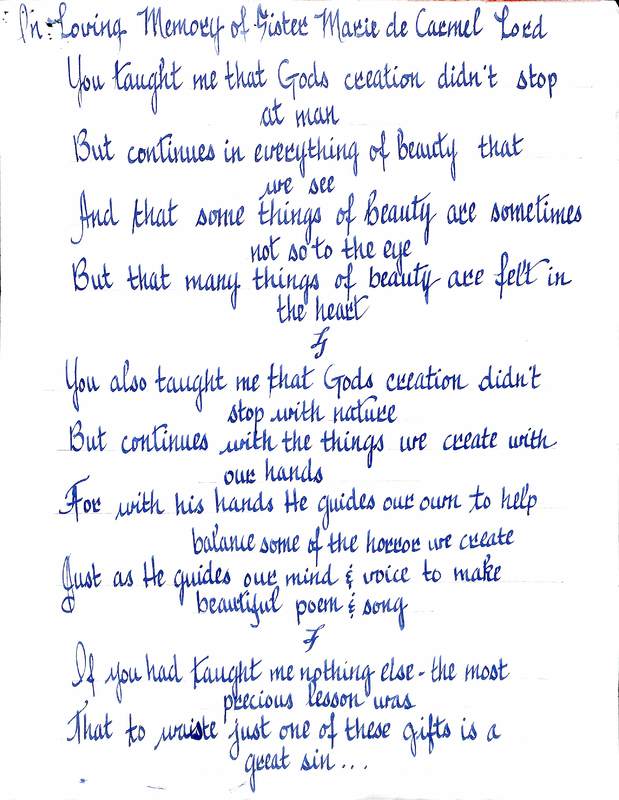 In Loving Memory of Sister Marie de Carmel Lord
You taught me that Gods creation didn't stop
at man
But continues in everything of beauty that
we see
And that some things of beauty are sometimes
not so to the eye
But that many things of beauty are felt in
the heart
You also taught me that Gods creation didn't
stop with nature
But continues with the things we create with
our hands
For with his hands He guides our own to help
balance some of the horror we create
Just as He guides our mind & voice to make
beautiful poem & song
If you had taught me nothing else - the most
precious lesson was
That to waiste just one of these gifts is a
great sin...